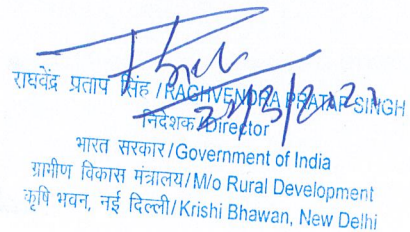 राघवेंद्र प्रताप सिंह / RAGHVENDRA PRATAP SINGH
निदेशक/Director
भारत सरकार/Government of India
ग्रामीण विकास मंत्रालय/M/o Rural Development
कृषि भवन, नई दिल्ली/Krishi Bhawan, New Delhi